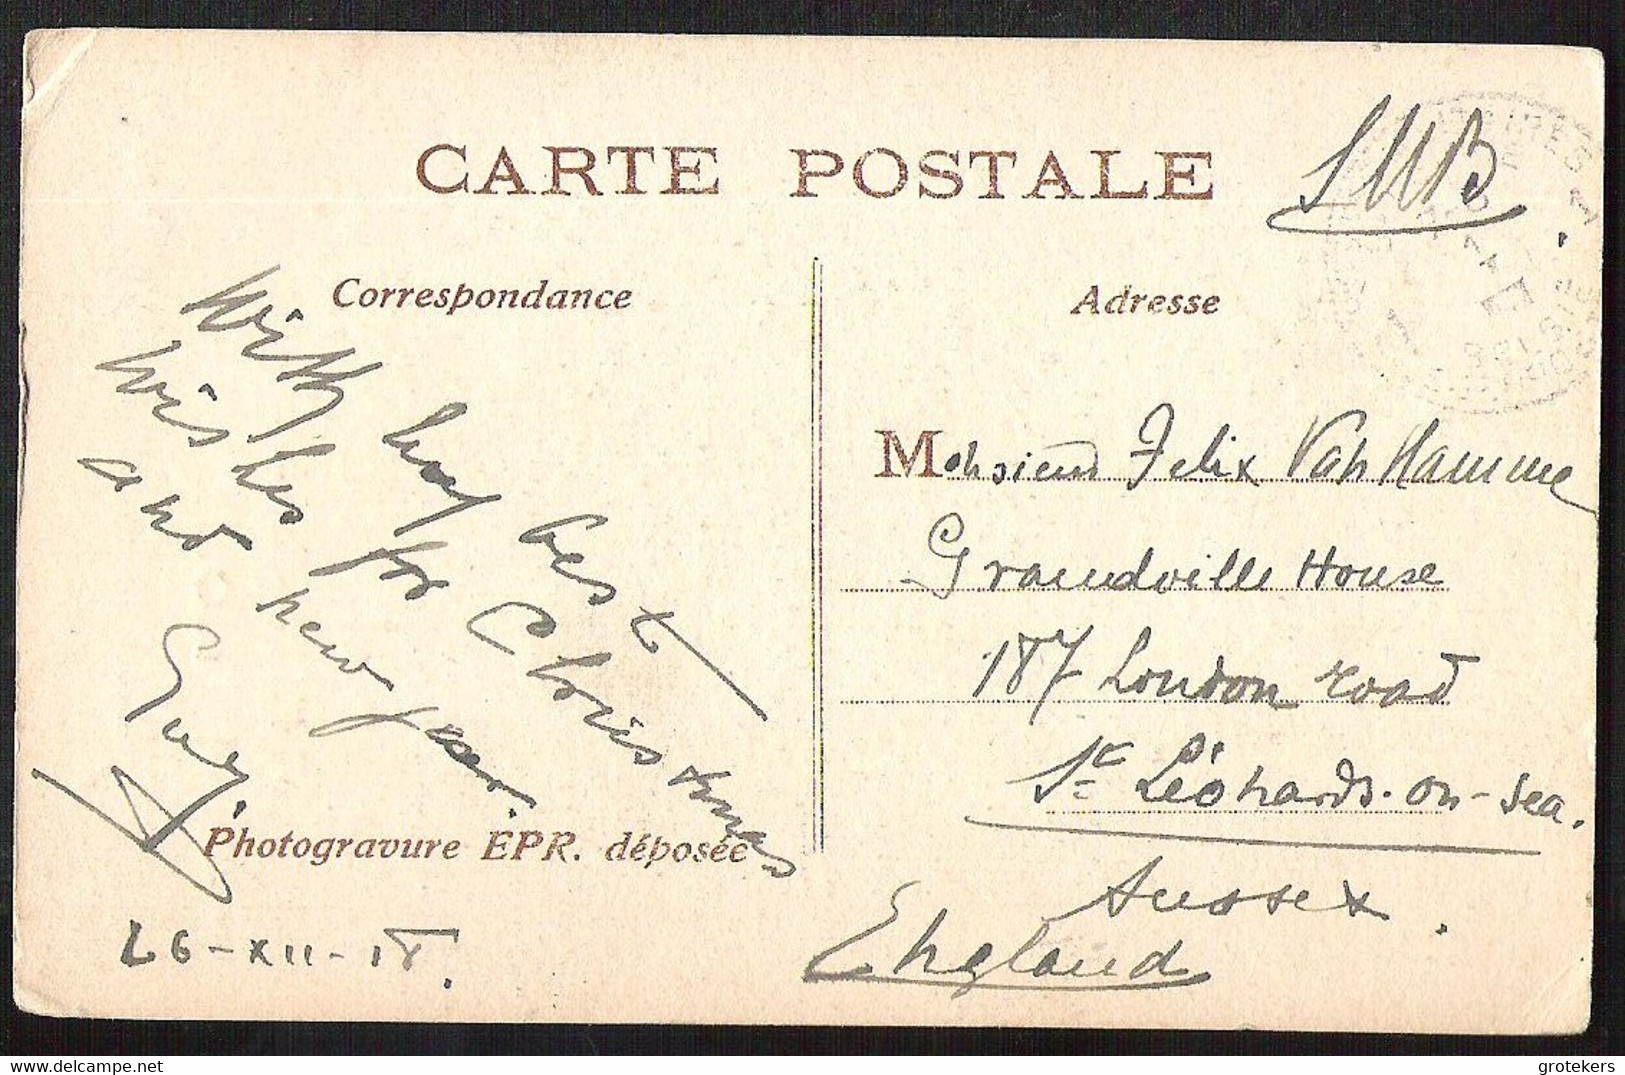 CARTE POSTALE
SMB.
Correspondance
Adresse
With my best
wishes for Christmas
and new year.
Guy.
Photogravure EPR. déposée
26-XII-18.
Monsieur Felix Van Hamme
Grandville House
187 London road
St Léonards-on-Sea.
Sussex.
England
grotekers